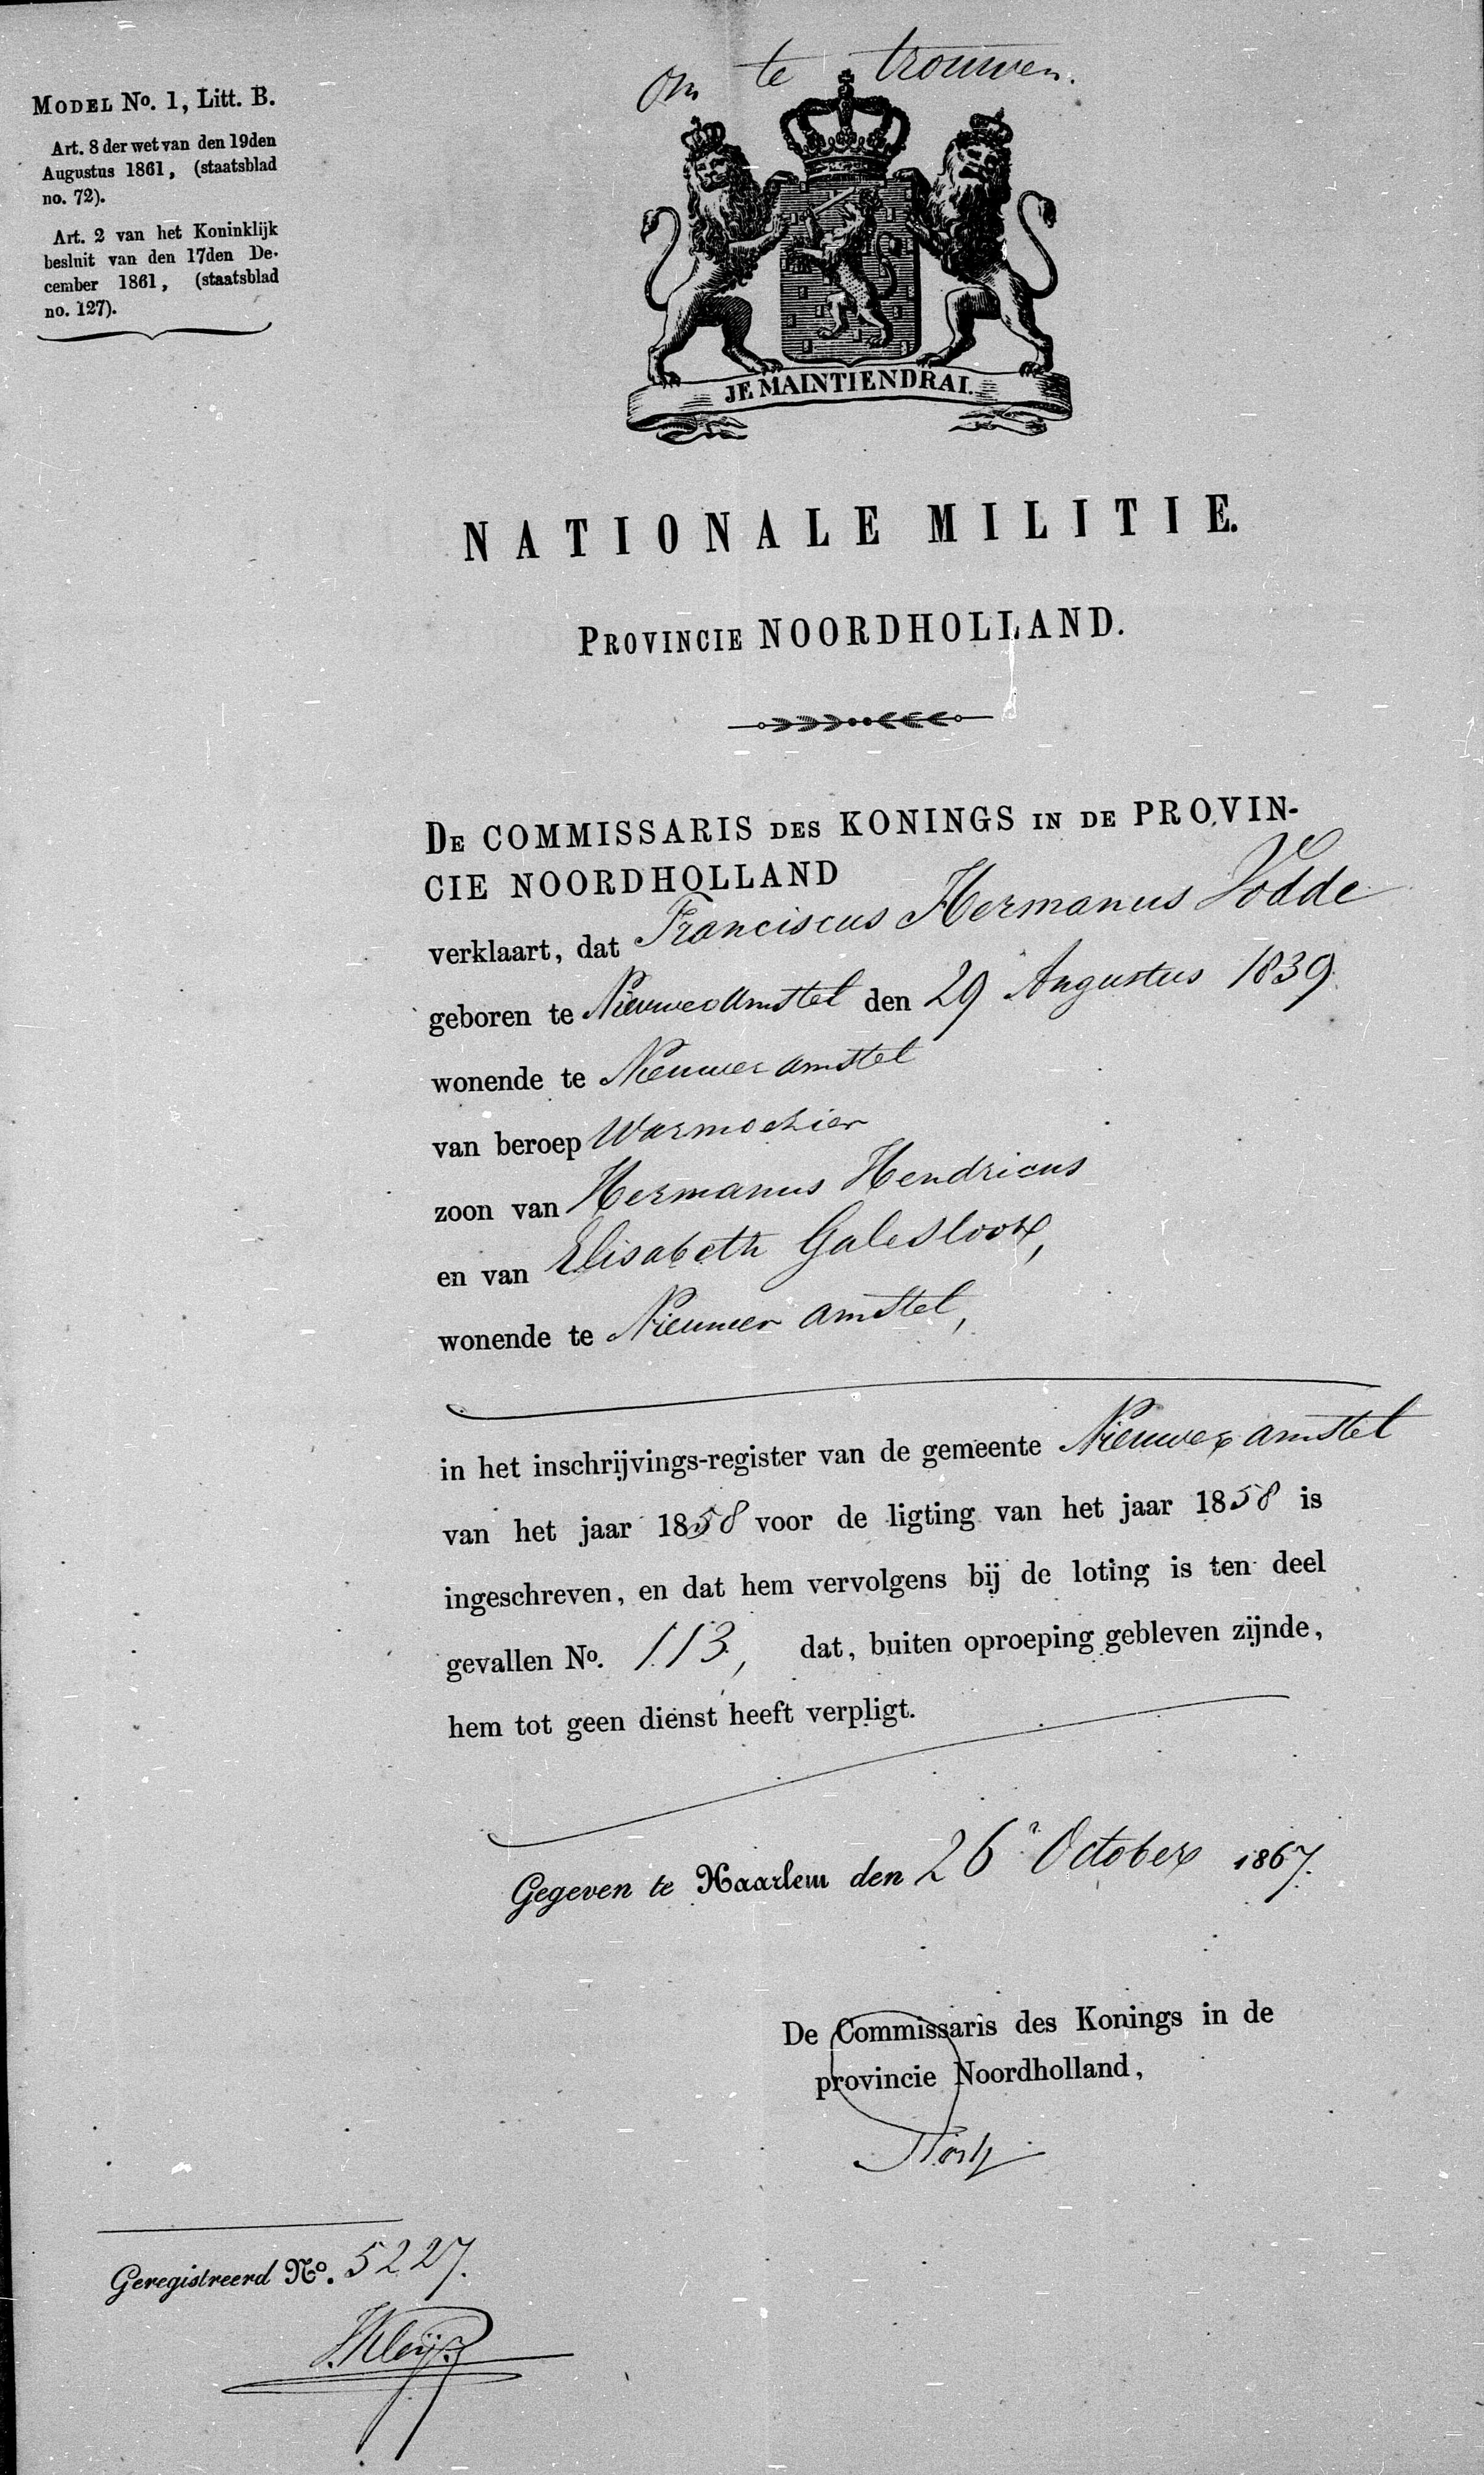 Om te trouwen.
MODEL No. 1, Litt. B.
Art. 8 der wet van den 19den
Augustus 1861, (staatsblad
no. 72).
Art. 2 van het Koninklijk
besluit van den 17den De-
cember 1861, (staatsblad
no. 127).
JE MAINTIENDRAI.
NATIONALE MILITIE.
PROVINCIE NOORDHOLLAND.
DE COMMISSARIS DES KONINGS IN DE PROVIN-
CIE NOORDHOLLAND
verklaart, dat Franciscus Hermanus Vodde
geboren te Nieuwer Amstel den 29 Augustus 1839.
wonende te Nieuwer amstel
van beroep Warmoezier
zoon van Hermanus Hendricus
en van Elisabeth Galesloot,
wonende te Nieuwer amstel,
in het inschrijvings-register van de gemeente Nieuwer amstel
van het jaar 1858 voor de ligting van het jaar 1858 is
ingeschreven, en dat hem vervolgens bij de loting is ten deel
gevallen No. 113, dat, buiten oproeping gebleven zijnde,
hem tot geen dienst heeft verpligt.
Gegeven te Haarlem den 26 October 1867.
De Commissaris des Konings in de
provincie Noordholland,
Geregistreerd No. 5227.